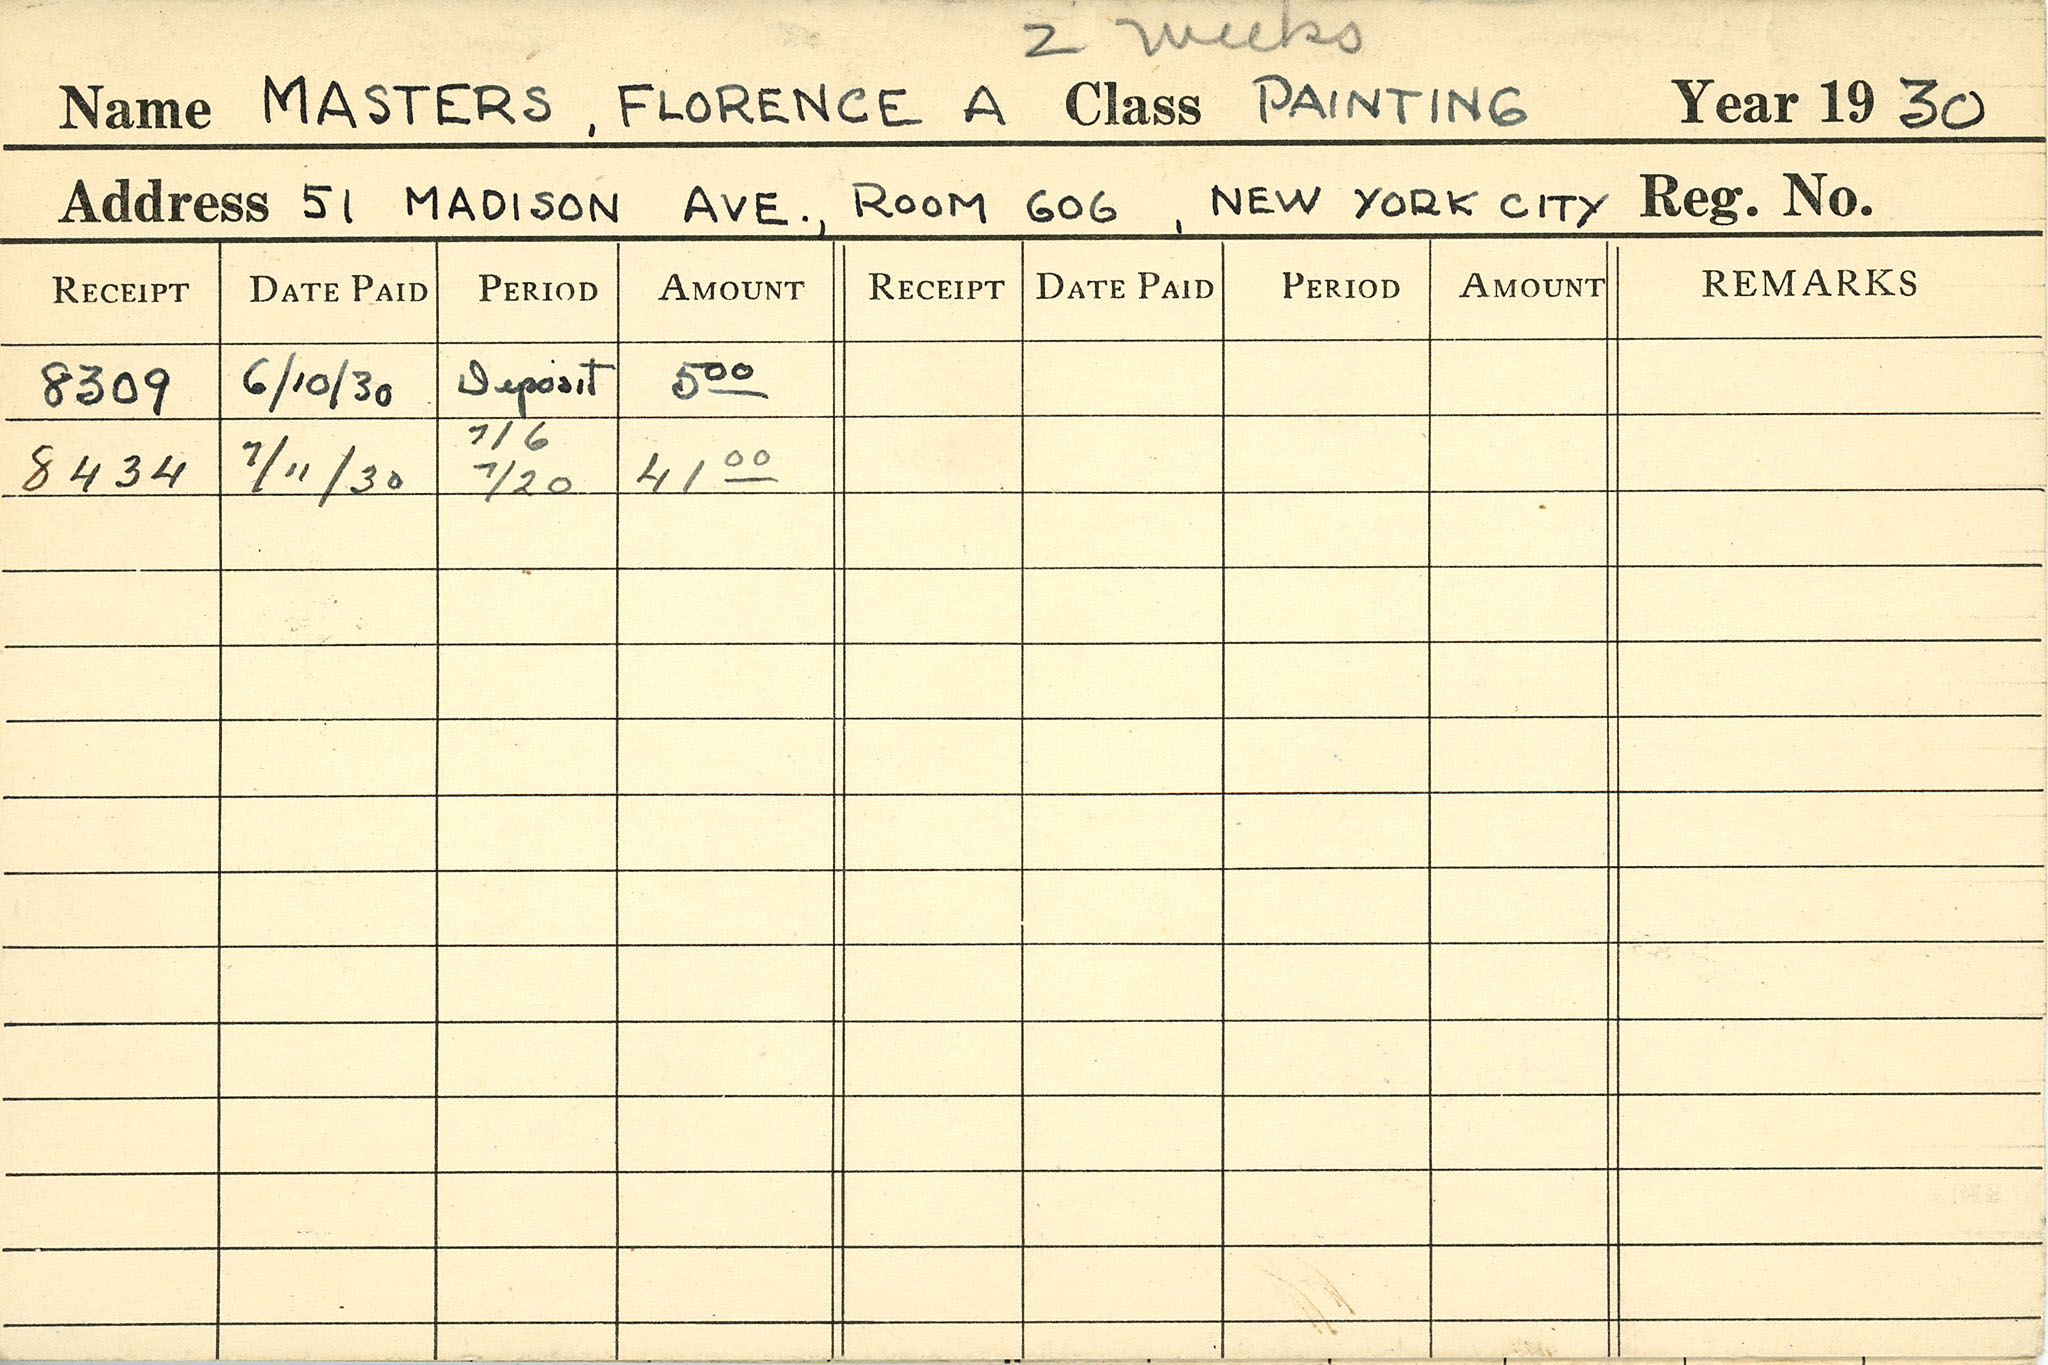 2 weeks
Name MASTERS, FLORENCE A Class PAINTING Year 19 30
Address 51 MADISON AVE., ROOM 606, NEW YORK CITY Reg. No.
RECEIPT DATE PAID PERIOD AMOUNT RECEIPT DATE PAID PERIOD AMOUNT REMARKS
8309 6/10/30 Deposit 5 00
7/6
8434 7/11/30 7/20 41 00